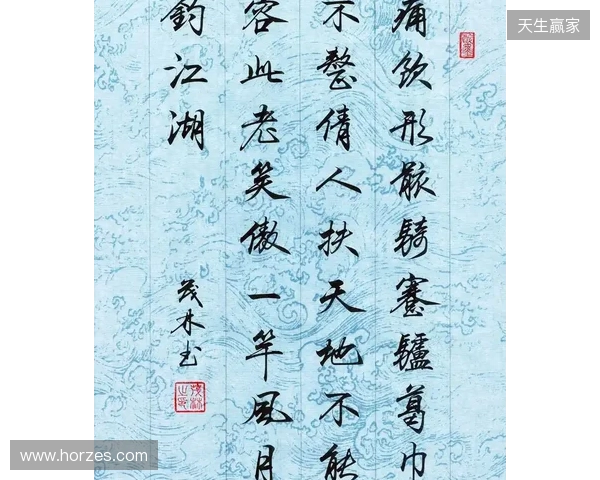 天生赢家
痛饮形骸騎蹇驢葛巾
不整倩人扶天地不能
容此老笑傲一竿風月
釣江湖
茂林书
www.horzes.com